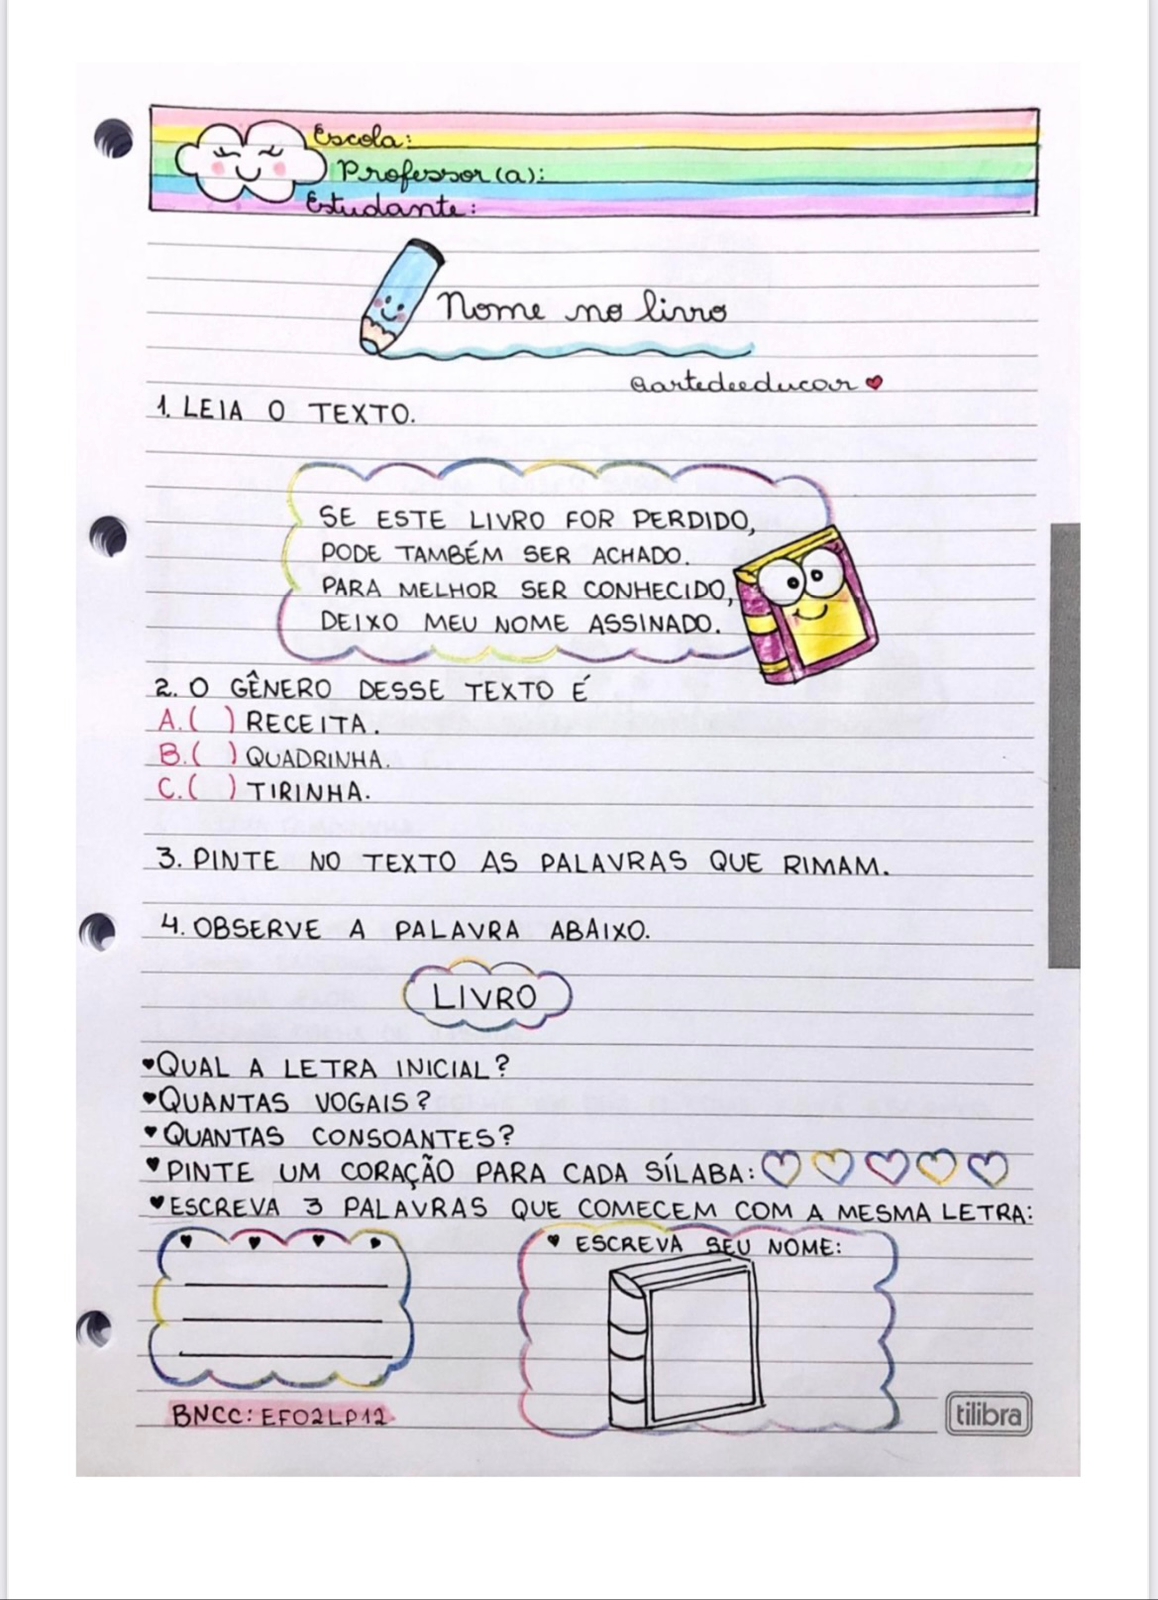 Escola:
Professor(a):
Estudante:
Nome no livro
@artedeeducar
1. LEIA O TEXTO.
SE ESTE LIVRO FOR PERDIDO,
PODE TAMBÉM SER ACHADO.
PARA MELHOR SER CONHECIDO,
DEIXO MEU NOME ASSINADO.
2. O GÊNERO DESSE TEXTO É
A.( ) RECEITA.
B.( ) QUADRINHA.
C.( ) TIRINHA.
3. PINTE NO TEXTO AS PALAVRAS QUE RIMAM.
4. OBSERVE A PALAVRA ABAIXO.
LIVRO
♥QUAL A LETRA INICIAL?
♥QUANTAS VOGAIS?
♥QUANTAS CONSOANTES?
♥PINTE UM CORAÇÃO PARA CADA SÍLABA:
♥ESCREVA 3 PALAVRAS QUE COMECEM COM A MESMA LETRA:
♥ ESCREVA SEU NOME:
BNCC: EF02LP12
tilibra